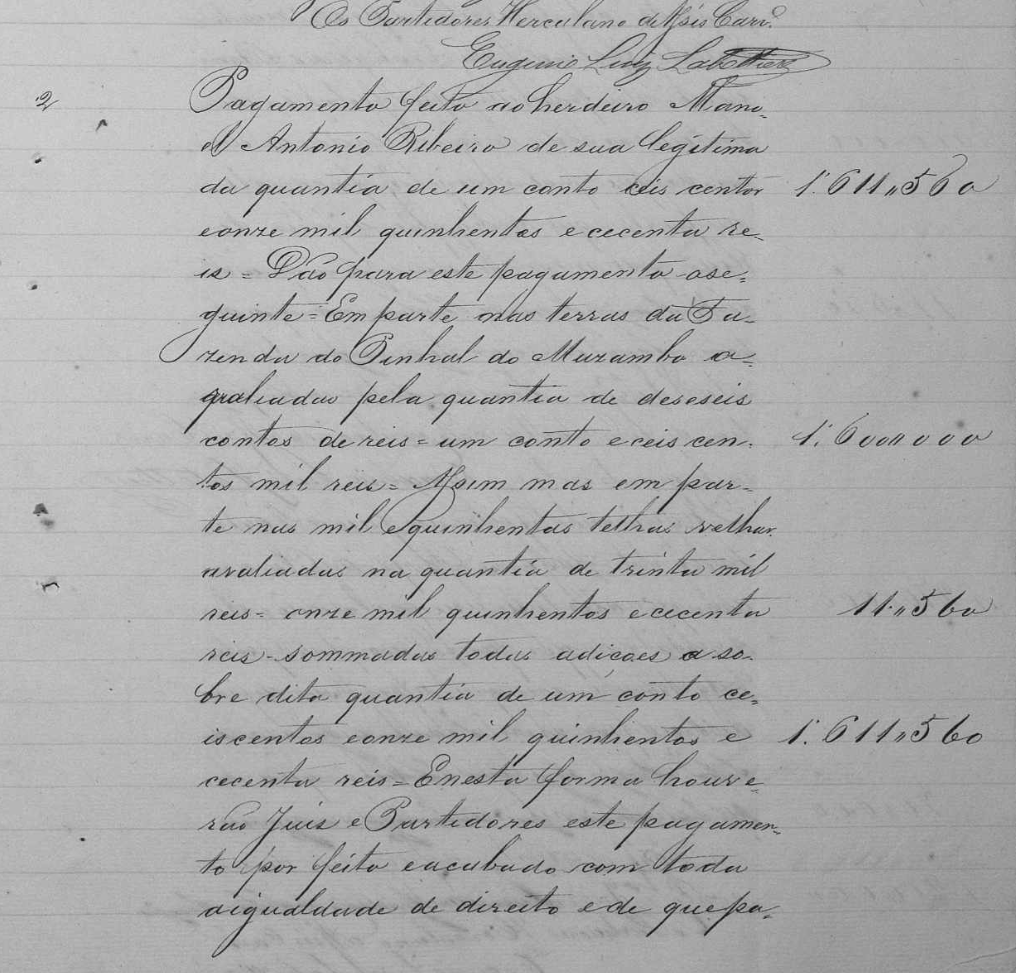 Os Partidores Herculano de Assis Carvº
Eugenio Luiz
2 Pagamento feito ao herdeiro Mano-
el Antonio Ribeiro de sua legitima
da quantia de um conto ceis centos 1:611"560
eonze mil quinhentos e cecenta re-
is = Dão para este pagamento ose-
guinte = Em parte nas terras da Fa-
zenda do Pinhal do Muzambo a-
valiadas pela quantia de deseseis
contos de reis = um conto eceis cen- 1:600"000
tos mil reis = Assim mas em par-
te nas mil equinhentas telhas velhas
avaliadas na quantia de trinta mil
reis = onze mil quinhentos ececenta 11"560
reis - sommadas todas adiçoes a so-
bre dita quantia de um conto ce-
iscentos eonze mil quinhentos e 1:611"560
cecenta reis = Enesta forma houve-
rão Juis e Partidores este pagamen-
to por feito eacabado com toda
aigualdade de direito ede quepa-